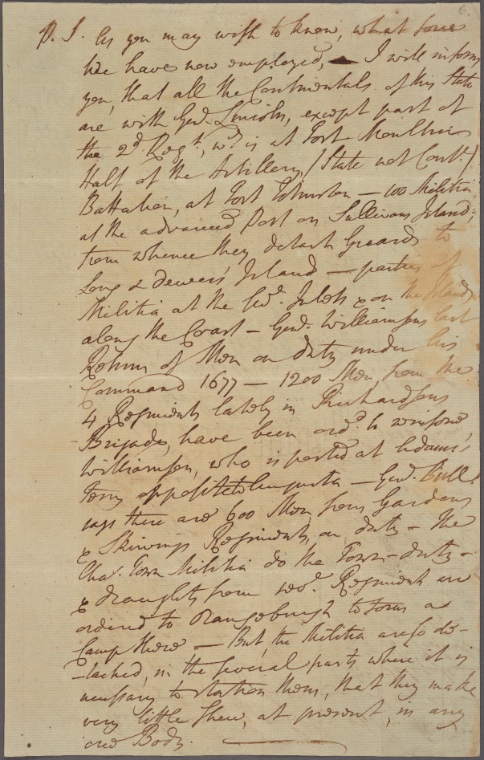 6.
P.S. As you may wish to know, what force
We have now employed, — I will inform
you, that all the Continentals of this State
are with Genl. Lincoln, except part of
the 2d. Regt. wch. is at Fort Moultrie
Half of the Artillery, (State not Contl.)
Battalion, at Fort Johnston — 100 Militia
at the advanced Post on Sullivans Island,
from whence they detach Guards to
Long & Dewees's Island — parties of
Militia at the sevl. Inlets & on the Islands
along the Coast — Genl. Williamsons last
Return of Men on duty under his
Command 1677 — 1200 Men, from the
4 Regiments lately in Richardsons
Brigade, have been ordd. to reinforce
Williamson, who is posted at Adams's
Ferry opposite to Augusta — Genl. Bull
says there are 600 Men from Gardens
& Skirvings Regiments, on duty — The
Chas. Town Militia do the Town-duty —
& draughts from sevl. Regiments are
ordered to Orangeburgh to form a
Camp there — But, the Militia are so de-
-tached, in the several parts where it is
necessary to station them, that they make
very little Shew, at present, in any
one Body.